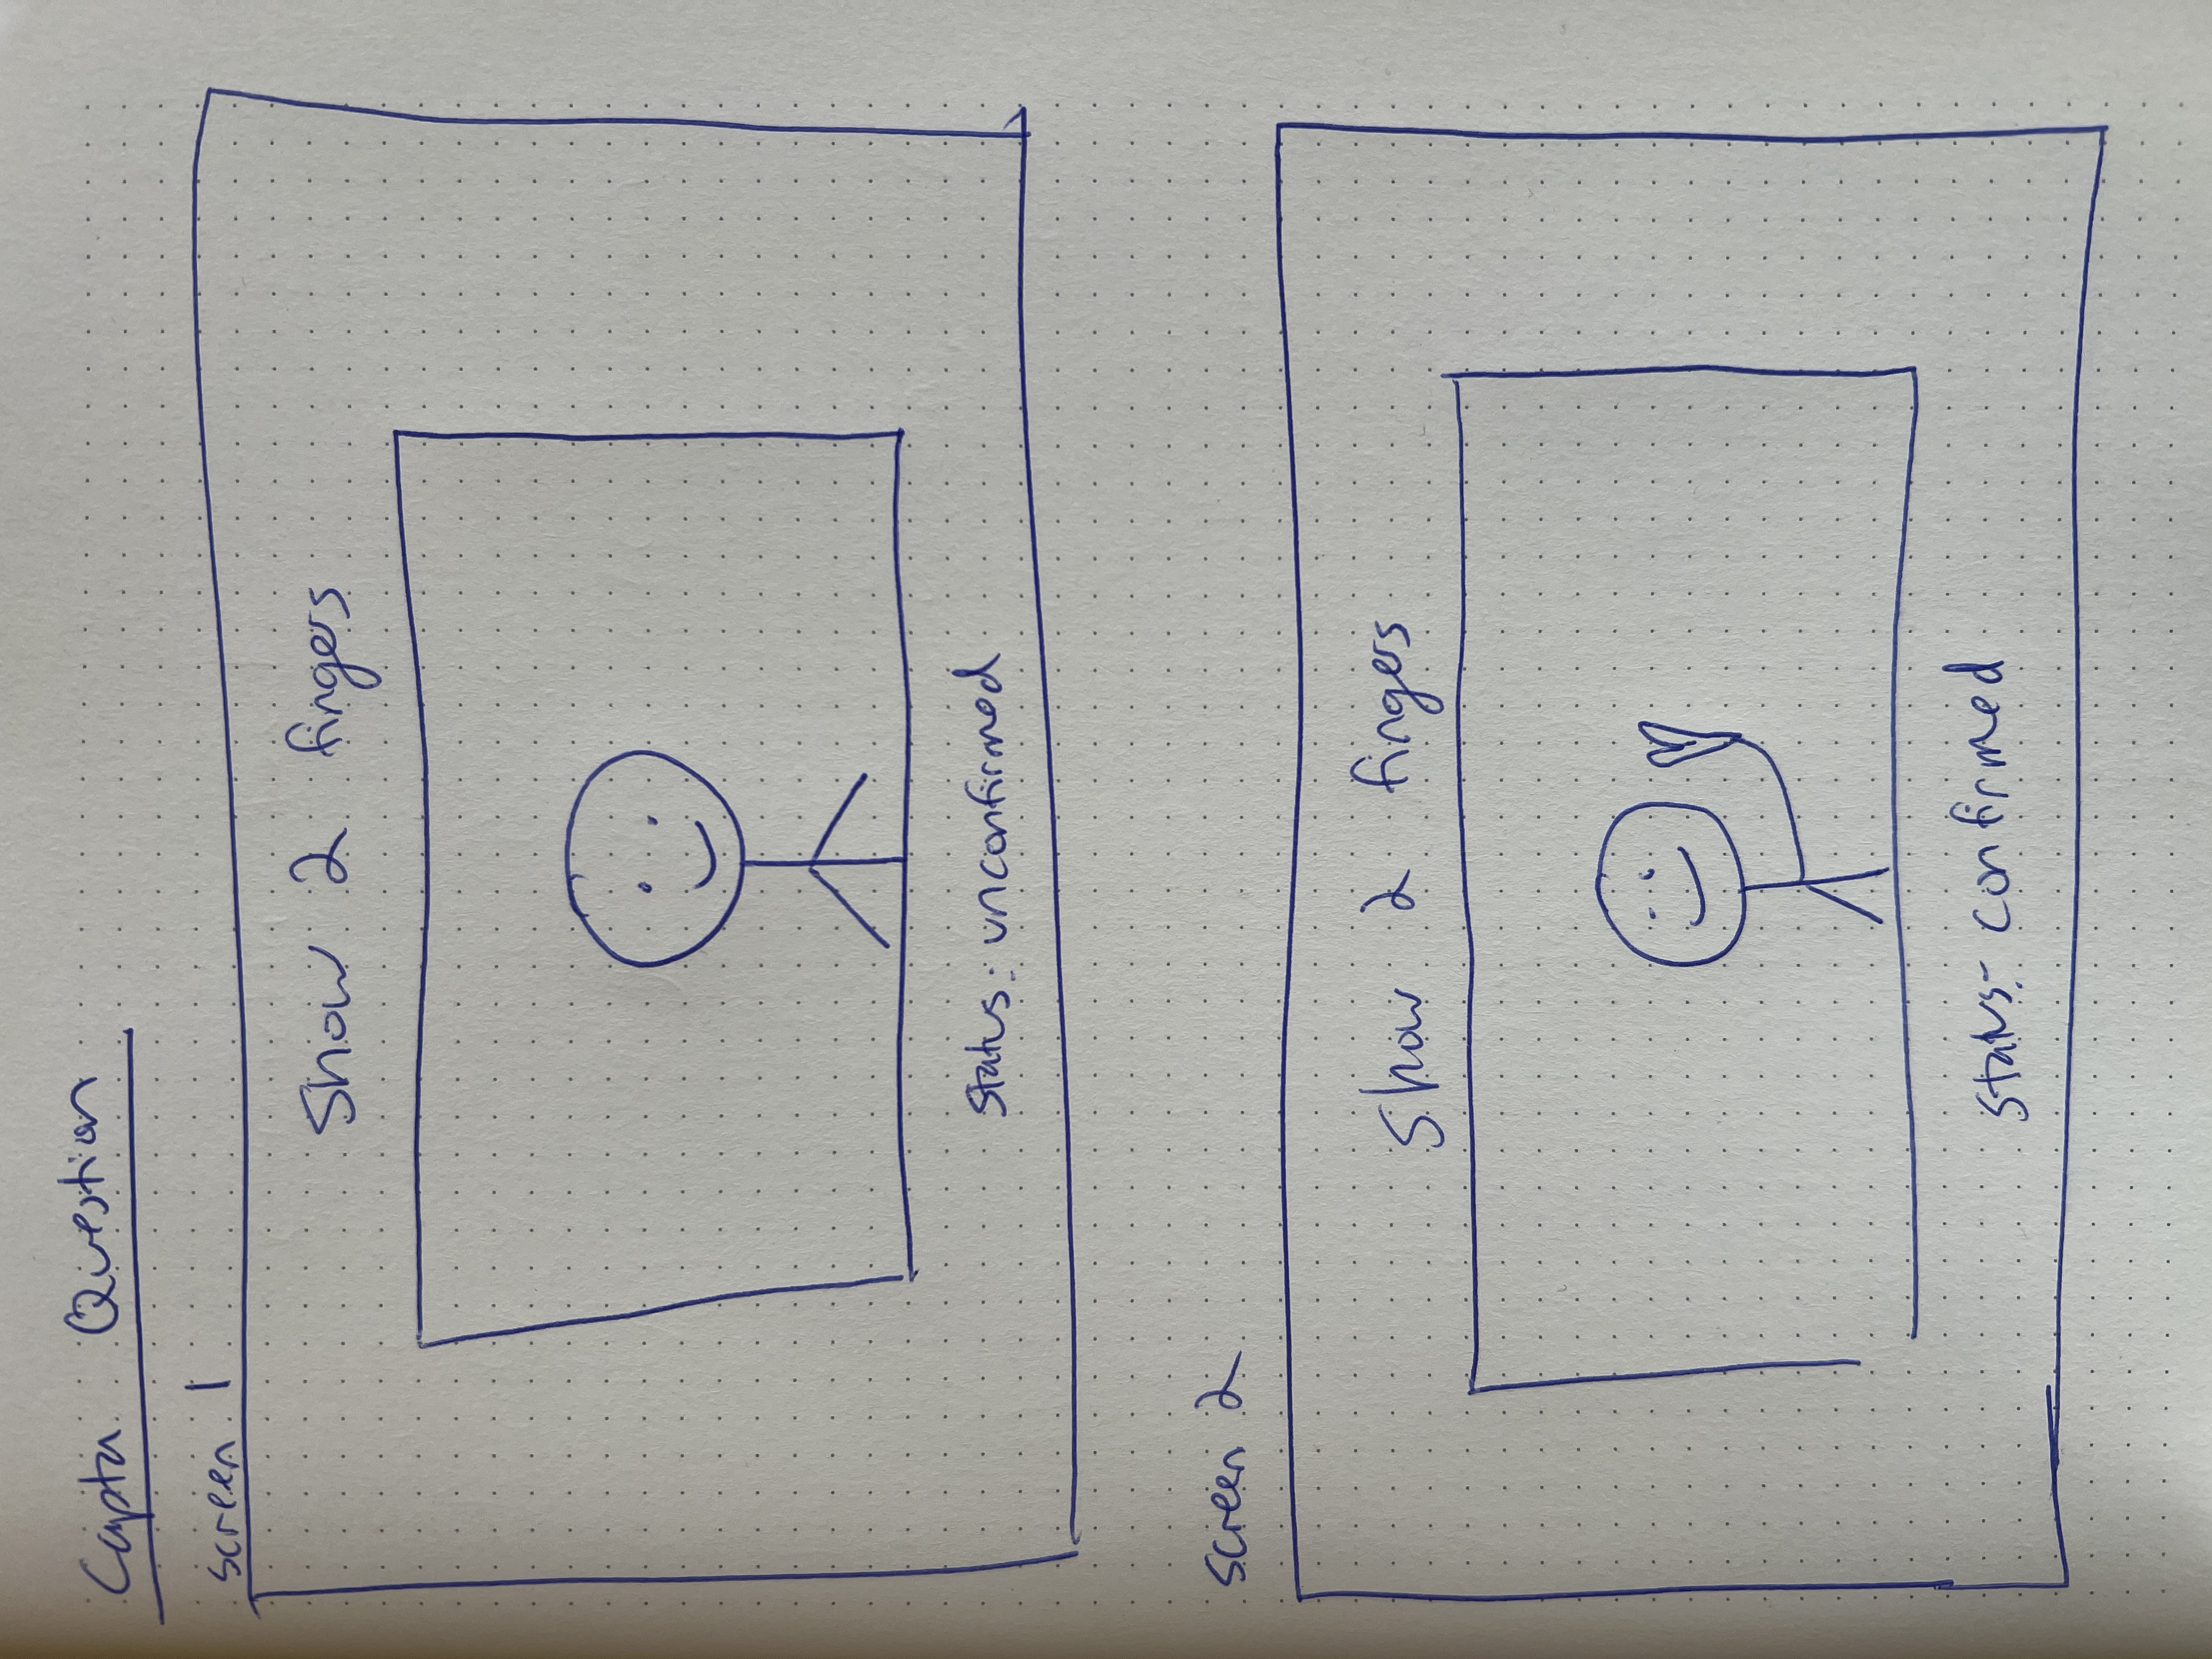 Capta Question
screen 1
Show 2 fingers
status: unconfirmed
screen 2
Show 2 fingers
status: confirmed